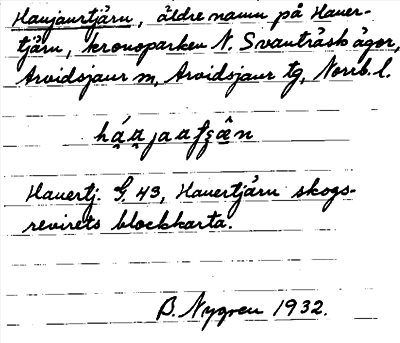 Haujaurtjärn, äldre namn på Hauer-
tjärn, kronoparken N. Svanträsk ägor,
Arvidsjaur sn, Arvidsjaur tg, Norrb. l.
Hauertj. G. 43, Hauertjärn skogs-
revirets blockkarta.
B. Nygren 1932.